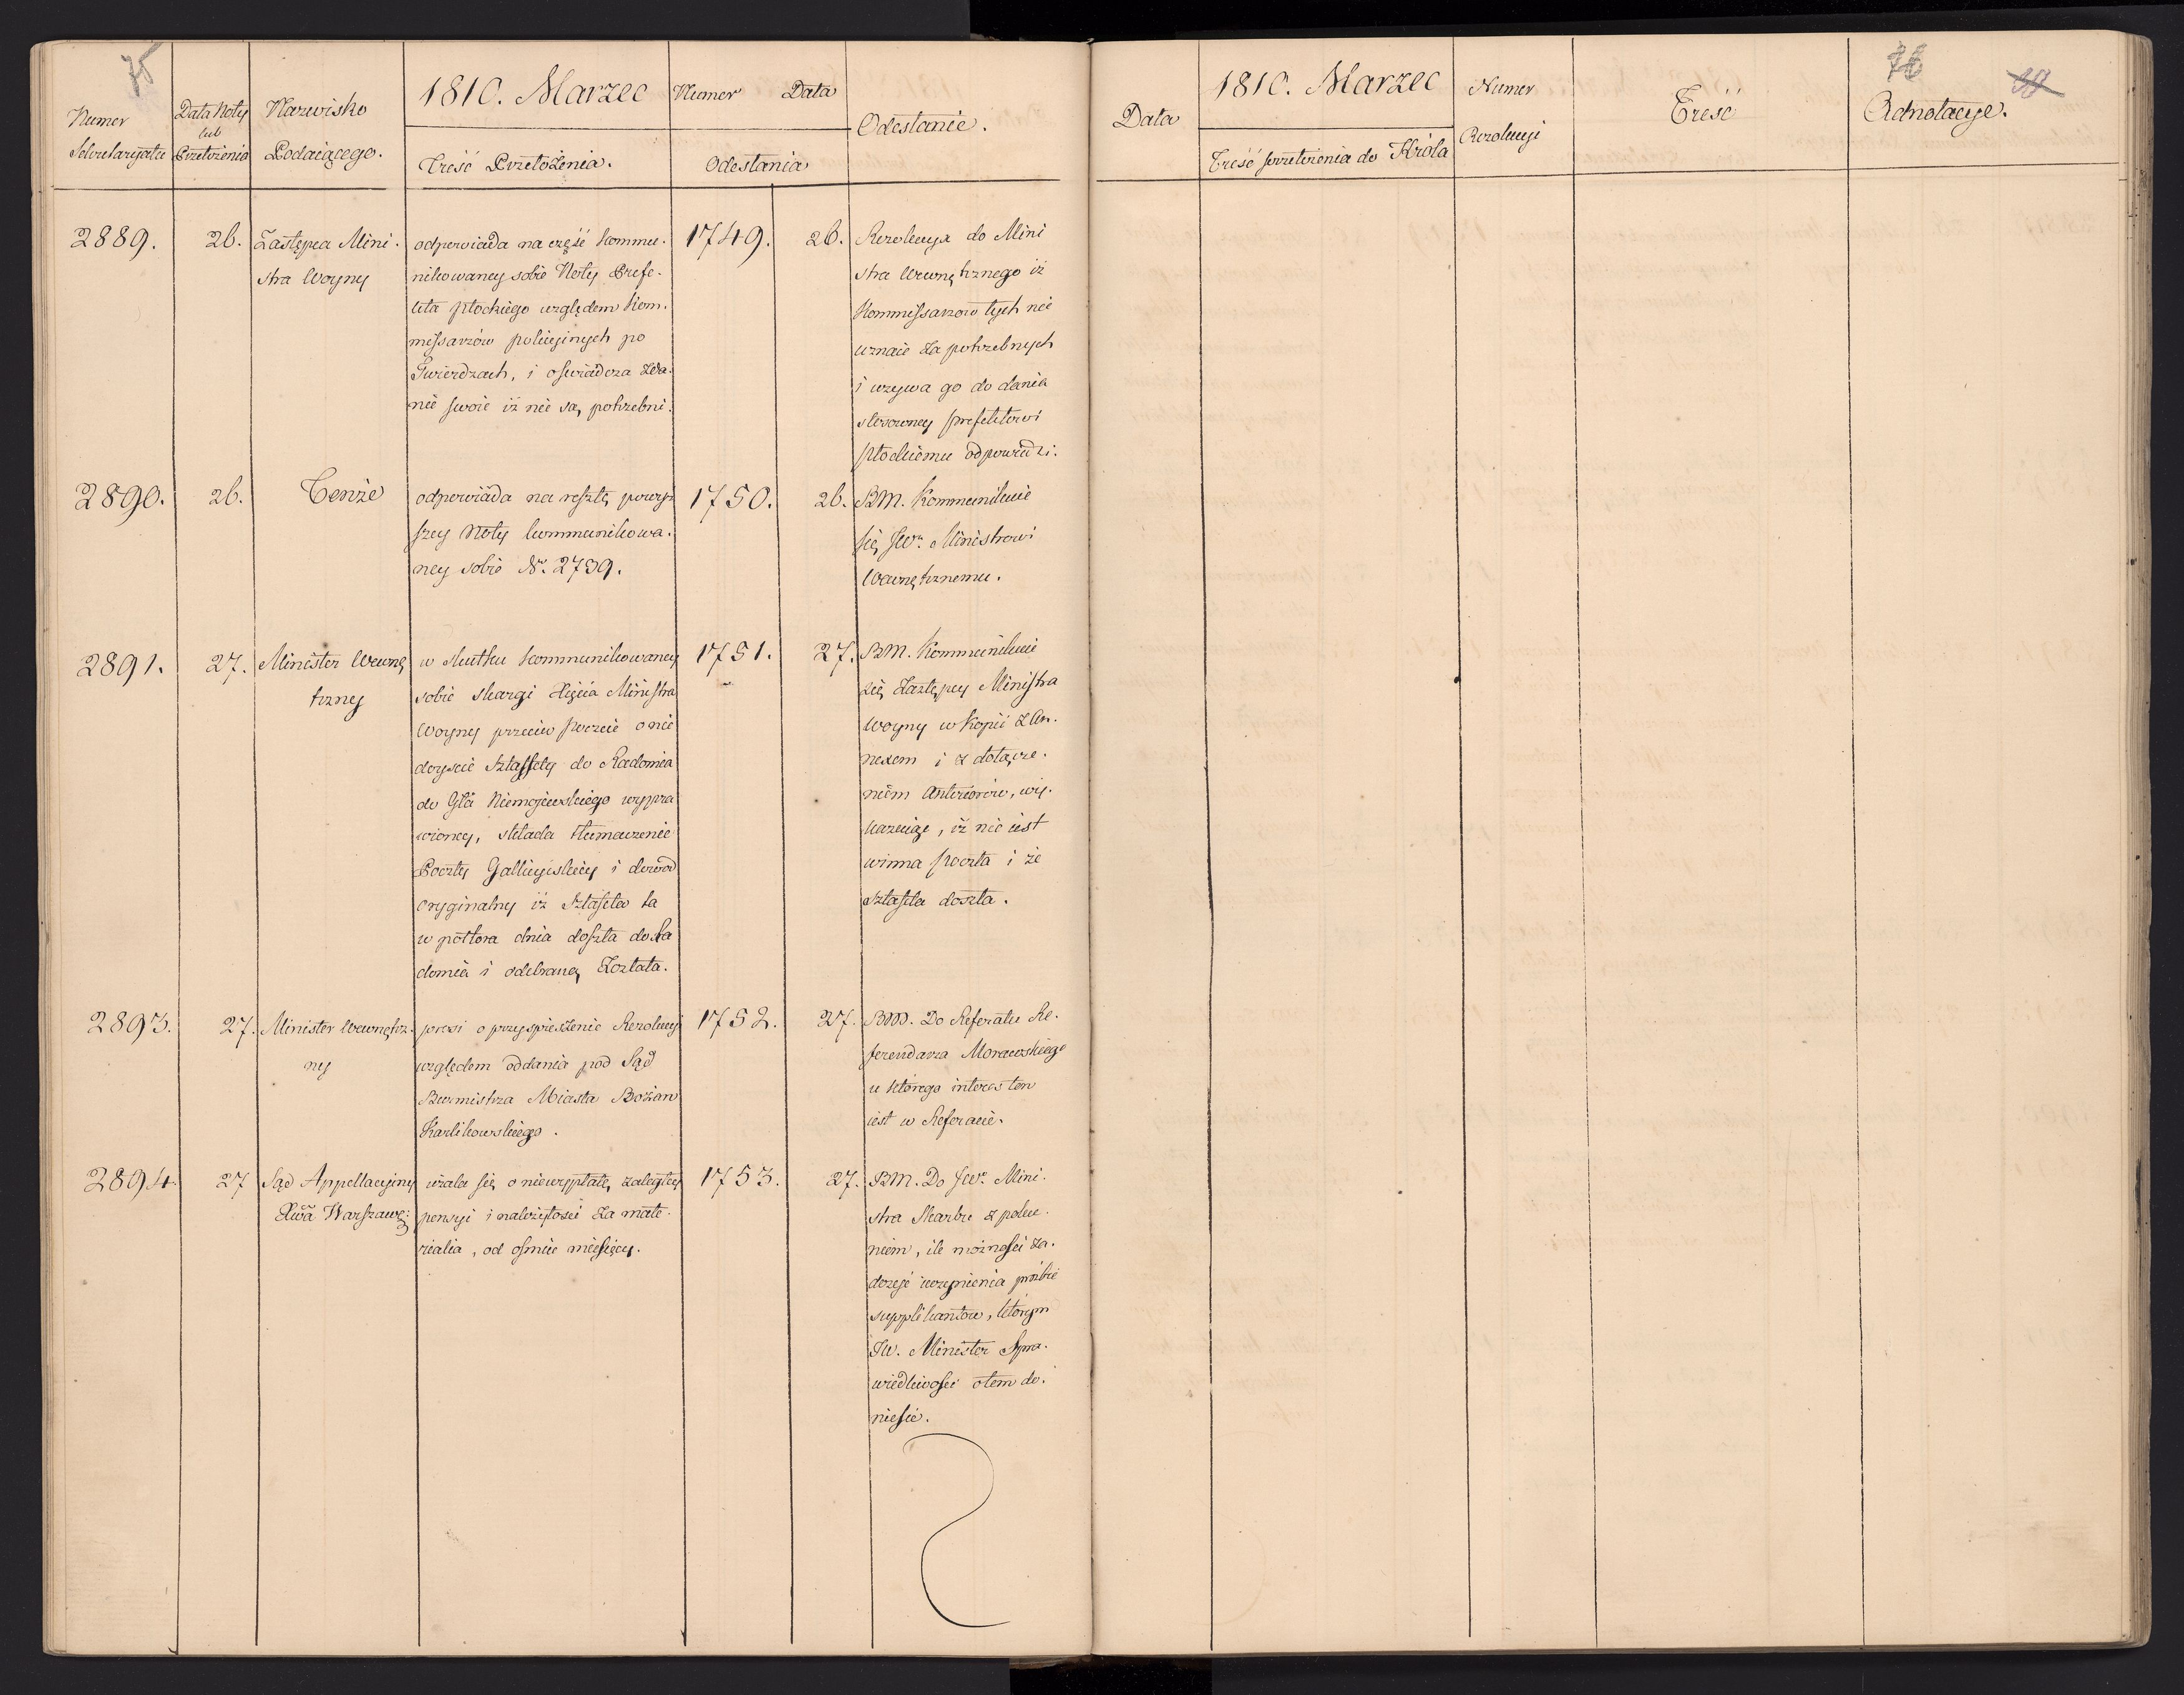 75
Numer
Sekretaryatu
Data Noty
lub
Przełożenia
Nazwisko
Podaiącego.
1810. Marzec
Treść Przełożenia.
Numer Data
Odesłania
Odesłanie.
2889.
26.
Zastępca Mini.
stra Woyny
odpowiada na część kommu.
nikowaney sobie Noty Prefe.
kta płockiego względem kom.
missarzów policyinych po
Twierdzach, i oswiadcza zda.
nie swoie iż nie są potrzebni.
1749.
26.
Rezolucya do Mini
stra Wewnętrznego iż
Kommissarzow tych nie
uznaie za potrzebnych
i wzywa go do dania
stosowney prefektowi
płockiemu odpowiedzi.
2890.
26.
Tenże
odpowiada na resztę powyż
szey Noty kommunikowa.
ney sobie Nr. 2739.
1750.
26.
BM. Kommunikuie
się JW. Ministrowi
Wewnętrznemu.
2891.
27.
Minister Wewnę
trzny
w skutku kommunikowaney
sobie skargi Xięcia Ministra
Woyny przeciw poczcie o nie
doyscie sztaffety do Radomia
do Gła Niemojewskiego wypra
wioney, składa tłumaczenie
Poczty Gallicyiskiey i dowod
oryginalny iż sztafeta ta
w połtora dnia doszła do Ra
domia i odebraną została.
1751.
27.
BM. Kommunikuie
się Zastępcy Ministra
Woyny w kopii z An.
nexem i z dołącze.
niem Anteriorów, wy.
kazuiąc, iż nie iest
winna poczta i że
sztafeta doszła.
2893.
27.
Minister Wewnętrz.
ny
prosi o przyspieszenie Rezolucyi
względem oddania pod Sąd
Burmistrza Miasta Bożan
Karlikowskiego.
1752.
27.
BM. Do Referatu Re.
ferendarza Morawskiego
u którego interes ten
iest w Referacie.
2894.
27
Sąd Appellacyiny
Xwa Warszawg:
użala się o niewypłatę zaległey
pensyi i należytości za mate.
rialia, od osmiu miesięcy.
1753.
27.
BM. Do JW. Mini.
stra Skarbu z polece.
niem, ile możności za.
dosyć uczynienia prośbie
supplikantow, którym
JW. Minister Spra.
wiedliwości otem do.
niesie.
76
38
Data
1810. Marzec
Treść przełożenia do Króla
Numer
Rezolucyi
Treść
Adnotacye.